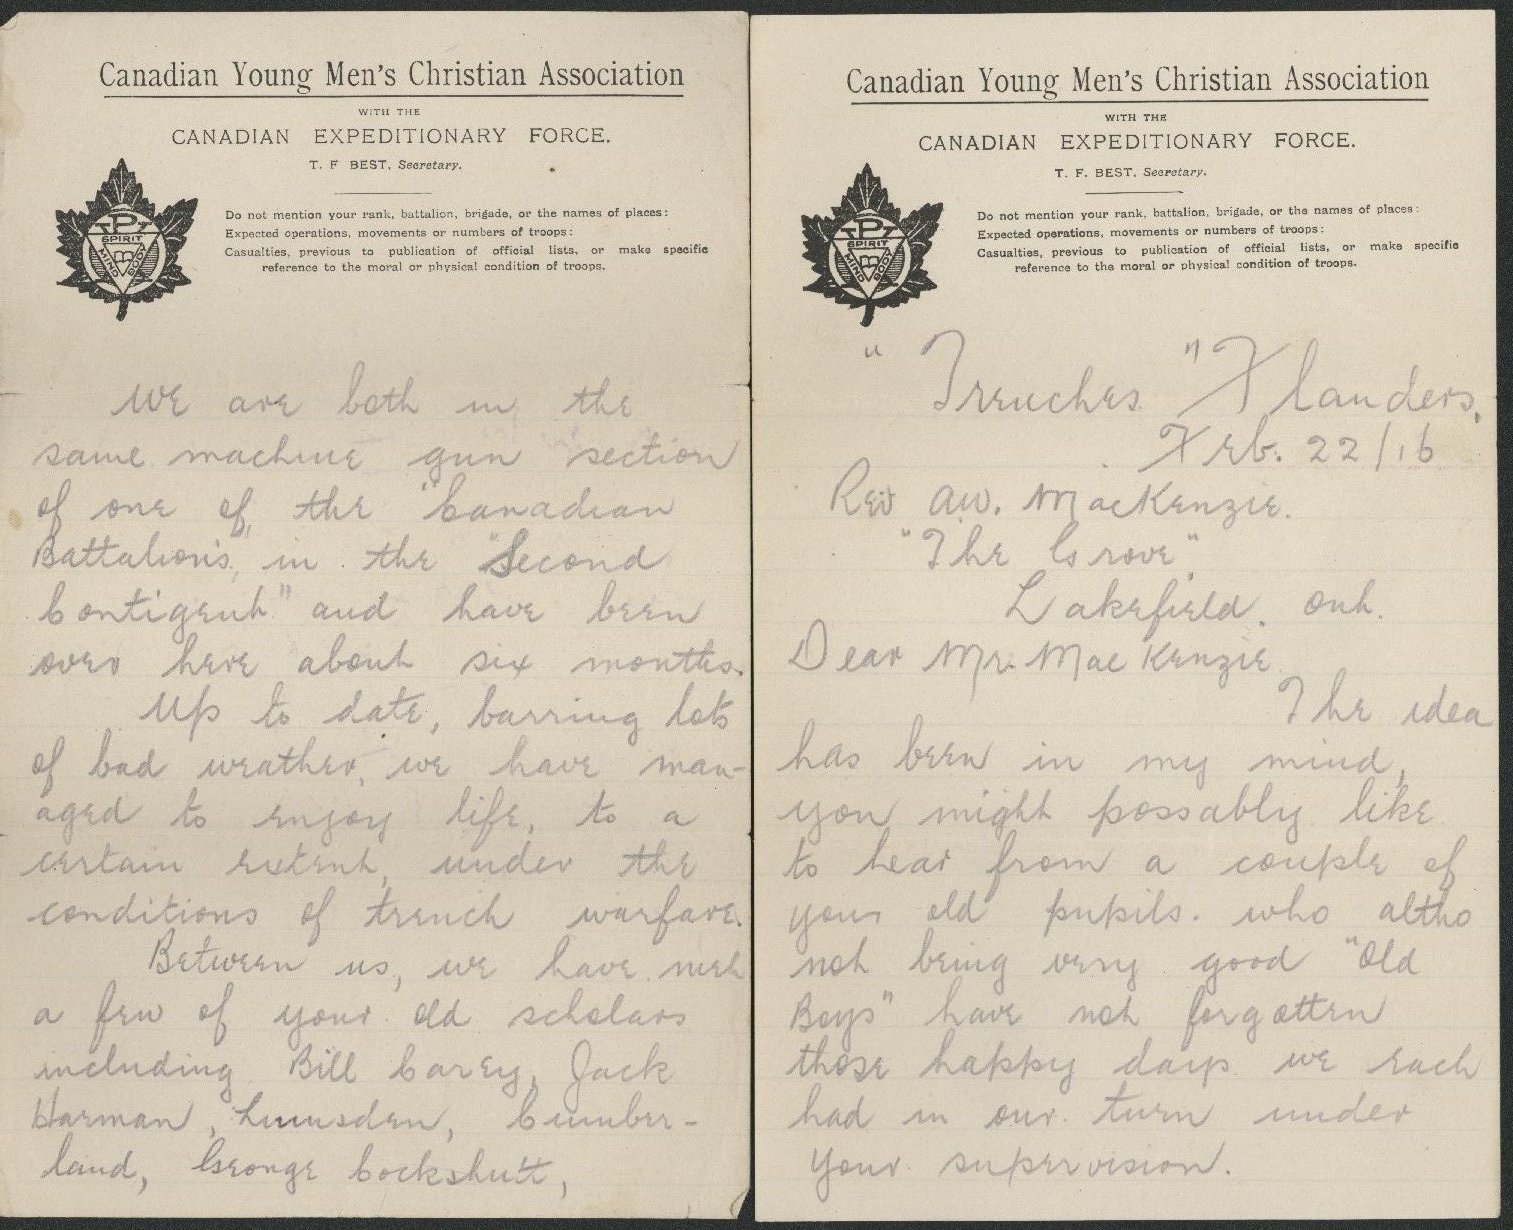 Canadian Young Men's Christian Association
WITH THE
CANADIAN EXPEDITIONARY FORCE.
T. F. BEST, Secretary.
SPIRIT
MIND
BODY
Do not mention your rank, battalion, brigade, or the names of places:
Expected operations, movements or numbers of troops:
Casualties, previous to publication of official lists, or make specific
reference to the moral or physical condition of troops.
"Trenches" Flanders.
Feb. 22/16
Rev AW. MacKenzie.
"The Grove".
Lakefield. Ont.
Dear Mr. MacKenzie
The idea
has been in my mind,
you might possably like
to hear from a couple of
your old pupils. who altho
not being very good "Old
Boys" have not forgotten
those happy days we each
had in our turn under
your supervision.
Canadian Young Men's Christian Association
WITH THE
CANADIAN EXPEDITIONARY FORCE.
T. F BEST, Secretary.
SPIRIT
MIND
BODY
Do not mention your rank, battalion, brigade, or the names of places:
Expected operations, movements or numbers of troops:
Casualties, previous to publication of official lists, or make specific
reference to the moral or physical condition of troops.
We are both in the
same machine gun section
of one of, the "Canadian
Battalion's, in the "Second
Contigent" and have been
over here about six months.
Up to date, barring lots
of bad weather, we have man-
aged to enjoy life, to a
certain extent, under the
conditions of trench warfare.
Between us, we have met
a few of your old scholars
including Bill Carey, Jack
Harman, Lumsden, Cumber-
land, George Cockshutt,